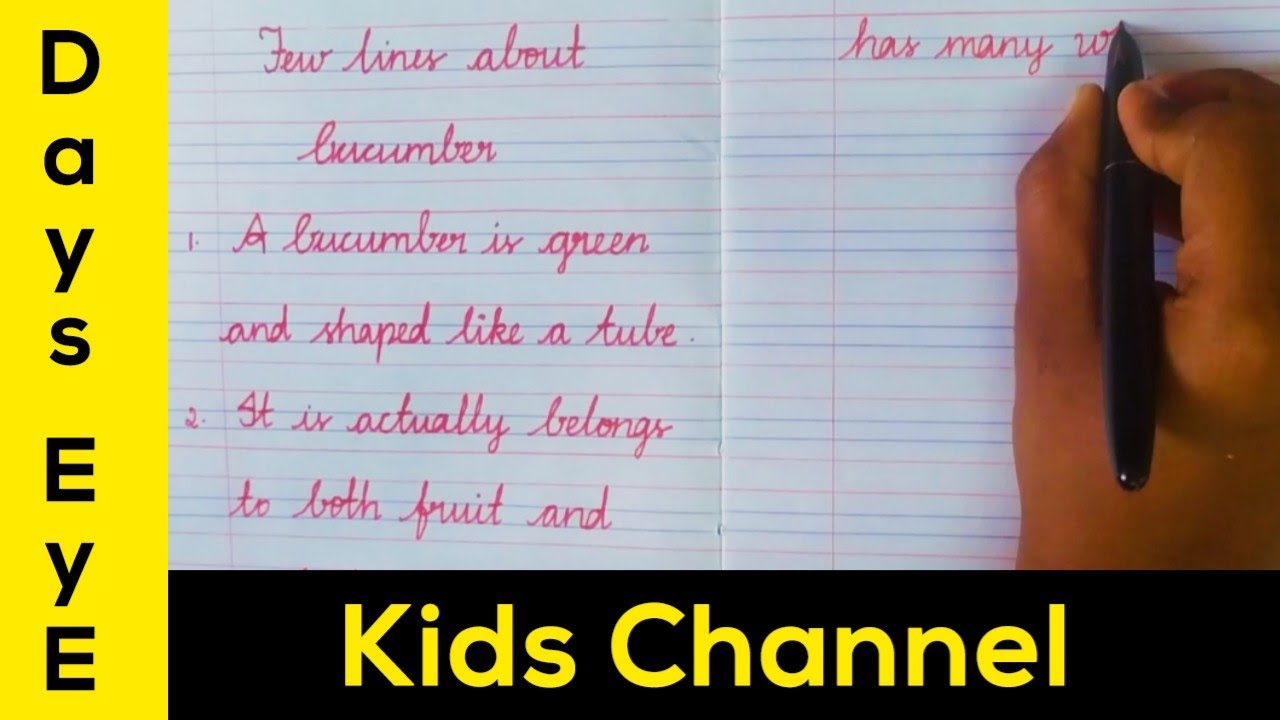 Days EyE
Few lines about
Cucumber
1. A Cucumber is green
and shaped like a tube.
2. It is actually belongs
to both fruit and
has many
Kids Channel